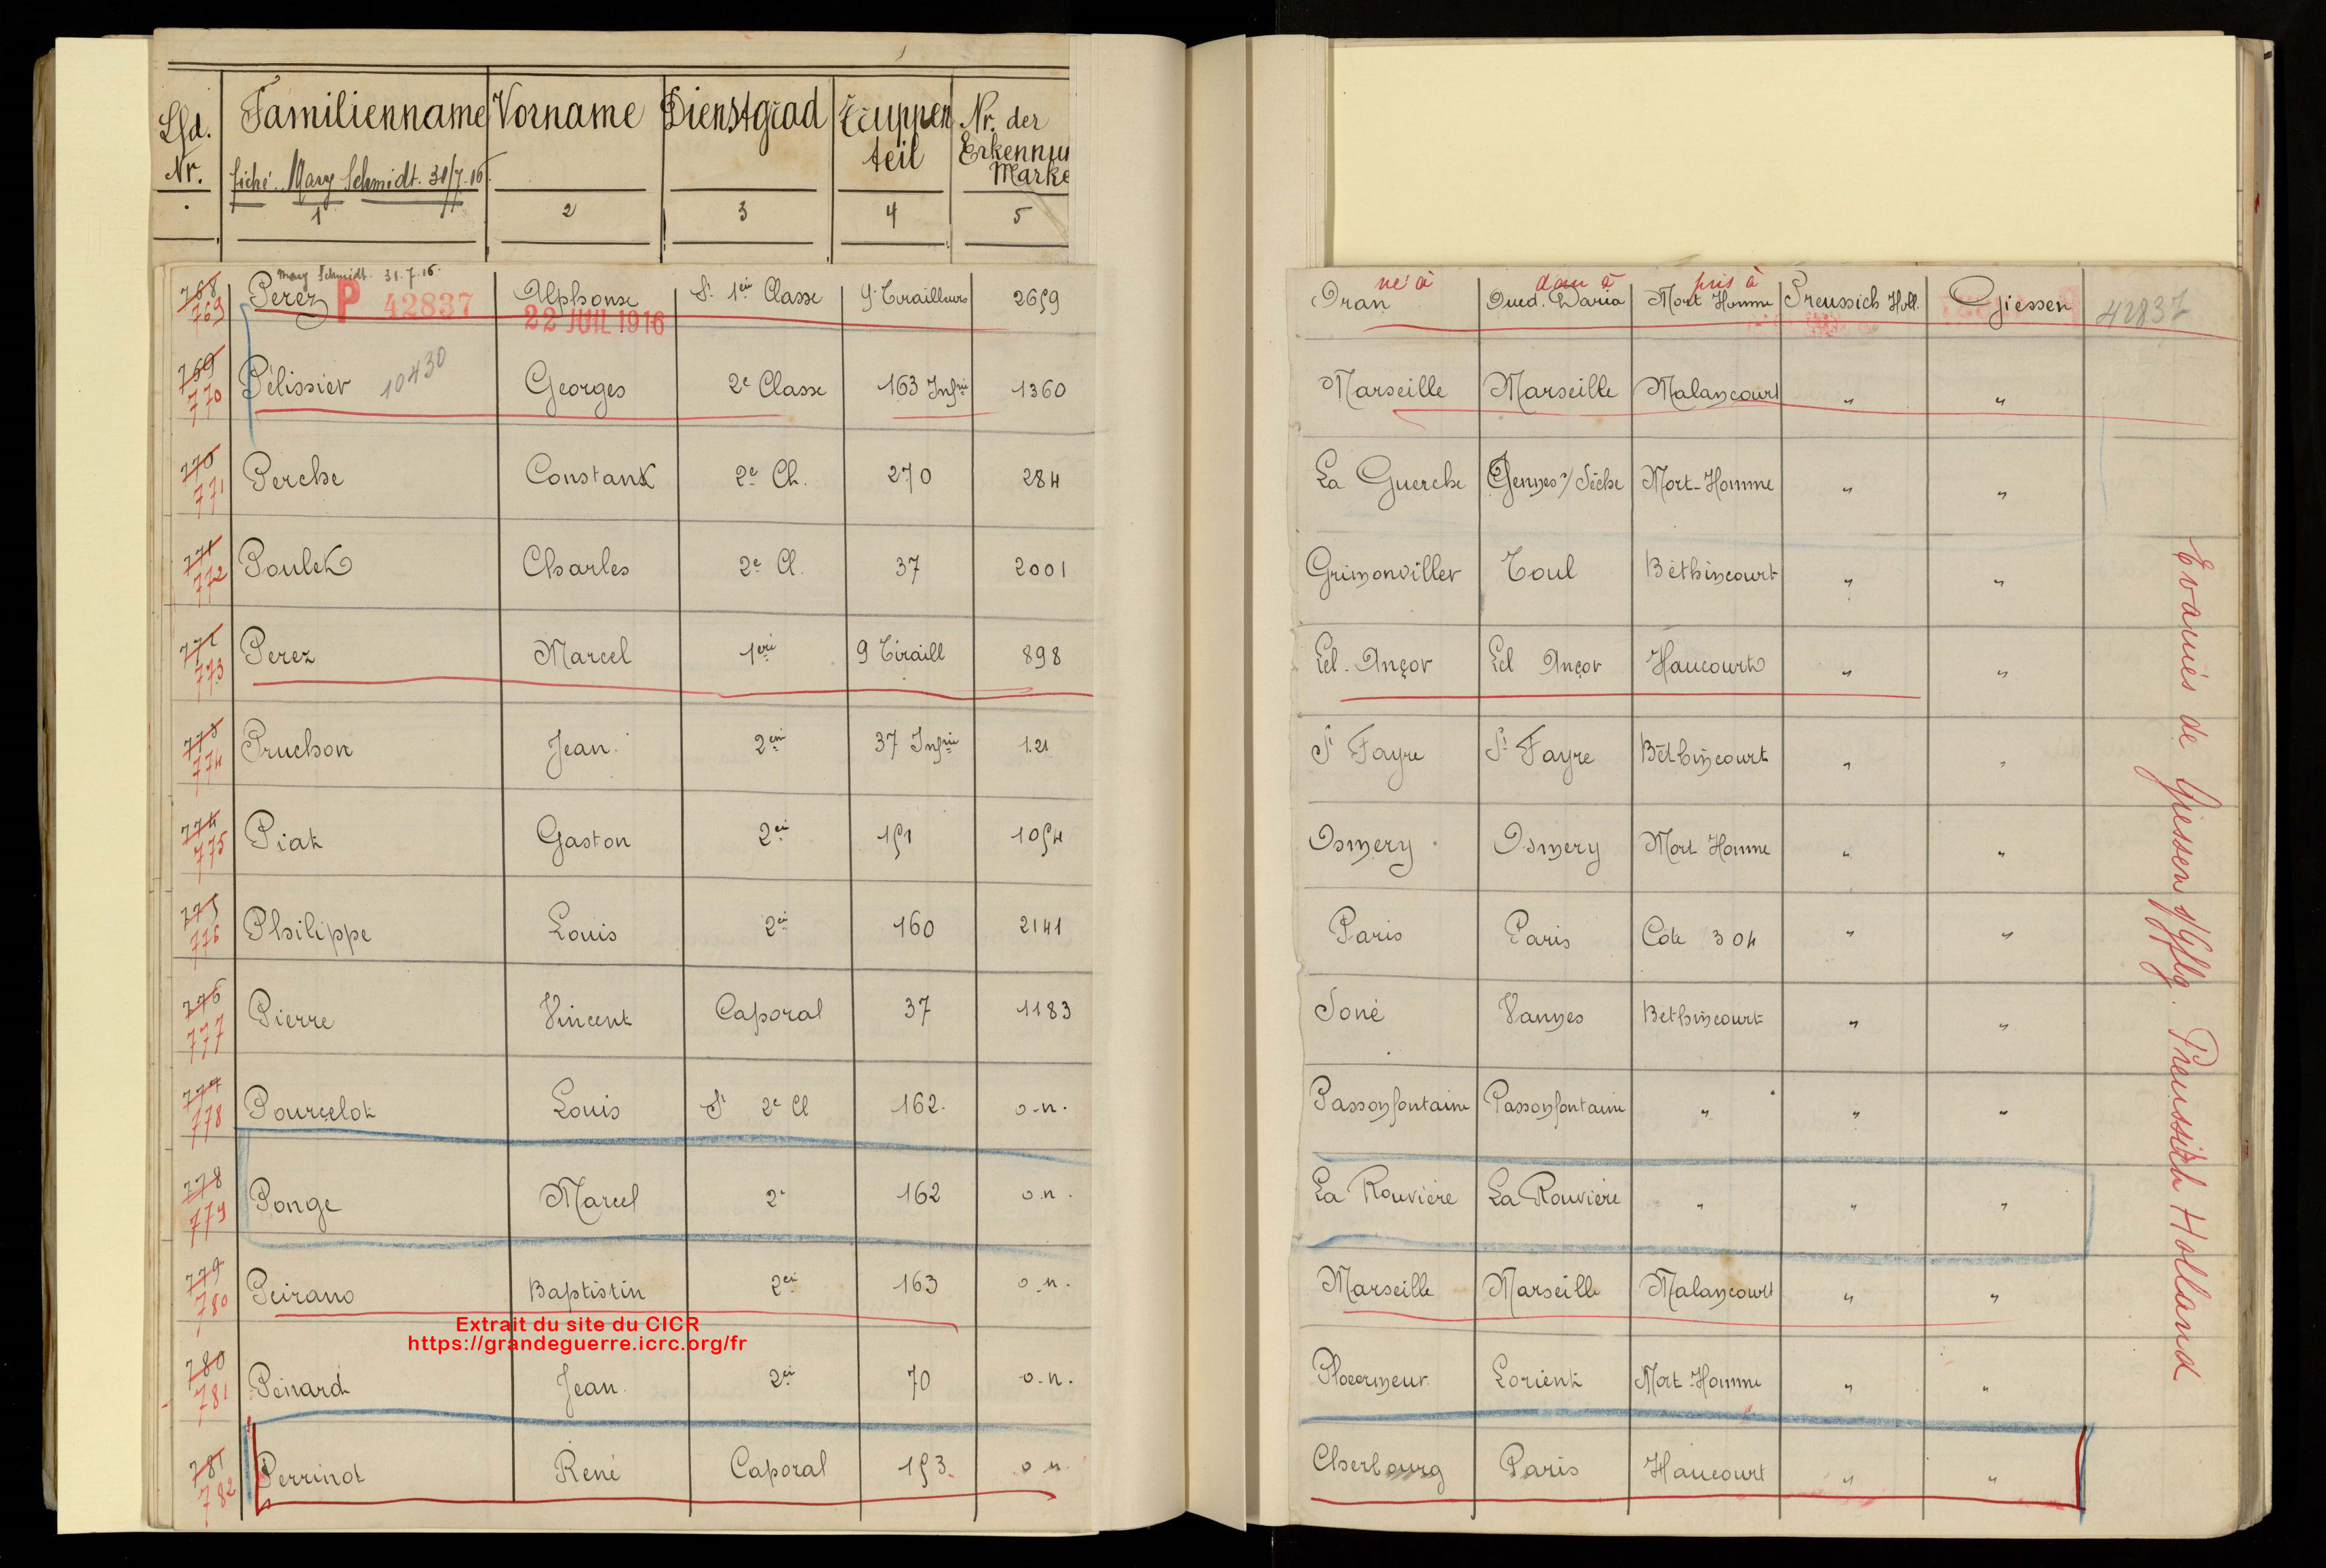 Lfd. Nr. Familienname Vorname Dienstgrad Truppen teil Nr. der Erkennu Marke
fiché Mary Schmidt. 31/7.16.
1 2 3 4 5
Mary Schmidt. 31.7.16.
né à dom à pris à
768 769 Perez P 42837 Alphonse St 1ere Classe 9 Tirailleurs 2659 Oran Oued. Mort Homme Preussich Holl. Giessen 42837
22 JUIL 1916
769 770 Pélissier 10430 Georges 2e Classe 163 Infrie 1360 Marseille Marseille Malancourt " "
770 771 Perche Constant 2e Ch. 270 284 La Guerche Gennes s/ Sèche Mort-Homme " "
771 772 Poulet Charles 2e Cl. 37 2001 Grimonviller Toul Béthincourt " "
772 773 Perez Marcel 1ere 9 Tiraill 898 Lel. Ançor Lel Ançor Haucourt " "
773 774 Pruchon Jean. 2em 37 Infrie 121 St Fayre St Fayre Béthincourt " "
774 775 Piat Gaston 2em 151 1054 Osmery Osmery Mort Homme " "
775 776 Philippe Louis 2em 160 2141 Paris Paris Cote 304 " "
776 777 Pierre Vincent Caporal 37 1183 Séné Vannes Béthincourt " "
777 778 Pourcelot Louis St 2e Cl 162. o.n. Passonfontaine Passonfontaine " " "
778 779 Ponge Marcel 2e 162 o.n. La Rouvière La Rouvière " " "
779 780 Peirano Baptistin 2em 163 o.n. Marseille Marseille Malancourt " "
Extrait du site du CICR
https://grandeguerre.icrc.org/fr
780 781 Pénard Jean. 2em 70 o.n. Ploermeur Lorient Mort-Homme " "
781 782 Perrinot René Caporal 153. o.n. Cherbourg Paris Haucourt " "
Evanués de Giessen s/Gflg. Preussich Holland